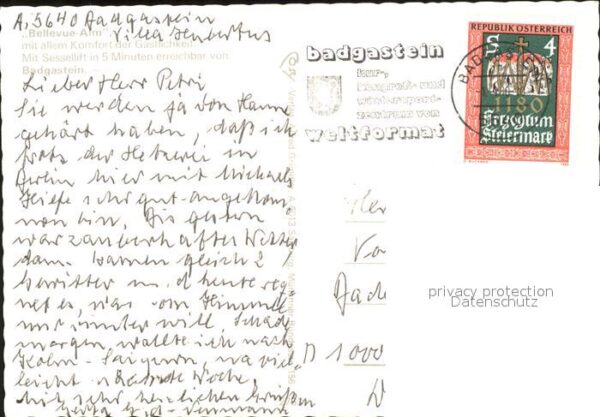 A. 5640 Badgastein
Villa Hubertus
"Bellevue-Alm"
mit allem Komfort der Gastlichkeit
Mit Sessellift in 5 Minuten erreichbar von
Badgastein.
Lieber Herr Petri
Sie werden ja von Hanne
gehört haben, daß ich
trotz der Hetzerei in
Berlin hier mit Michaels
Hilfe sehr gut angekom
men bin. Bis gestern
war zauberhaftes Wetter
dann kamen gleich 2
Gewitter und heute reg
net es, was vom Himmel
nur runter will. Schade
morgen wollte ich nach
viel
leicht nächste Woche.
Mit sehr herzlichen Grüßen
badgastein
kur-,
kongreß- und
wintersport-
zentrum von
weltformat
REPUBLIK ÖSTERREICH
S 4
1180
Herzogtum
Steiermark
BADGASTEIN
Her
Va
Bade
D 1000
privacy protection
Datenschutz